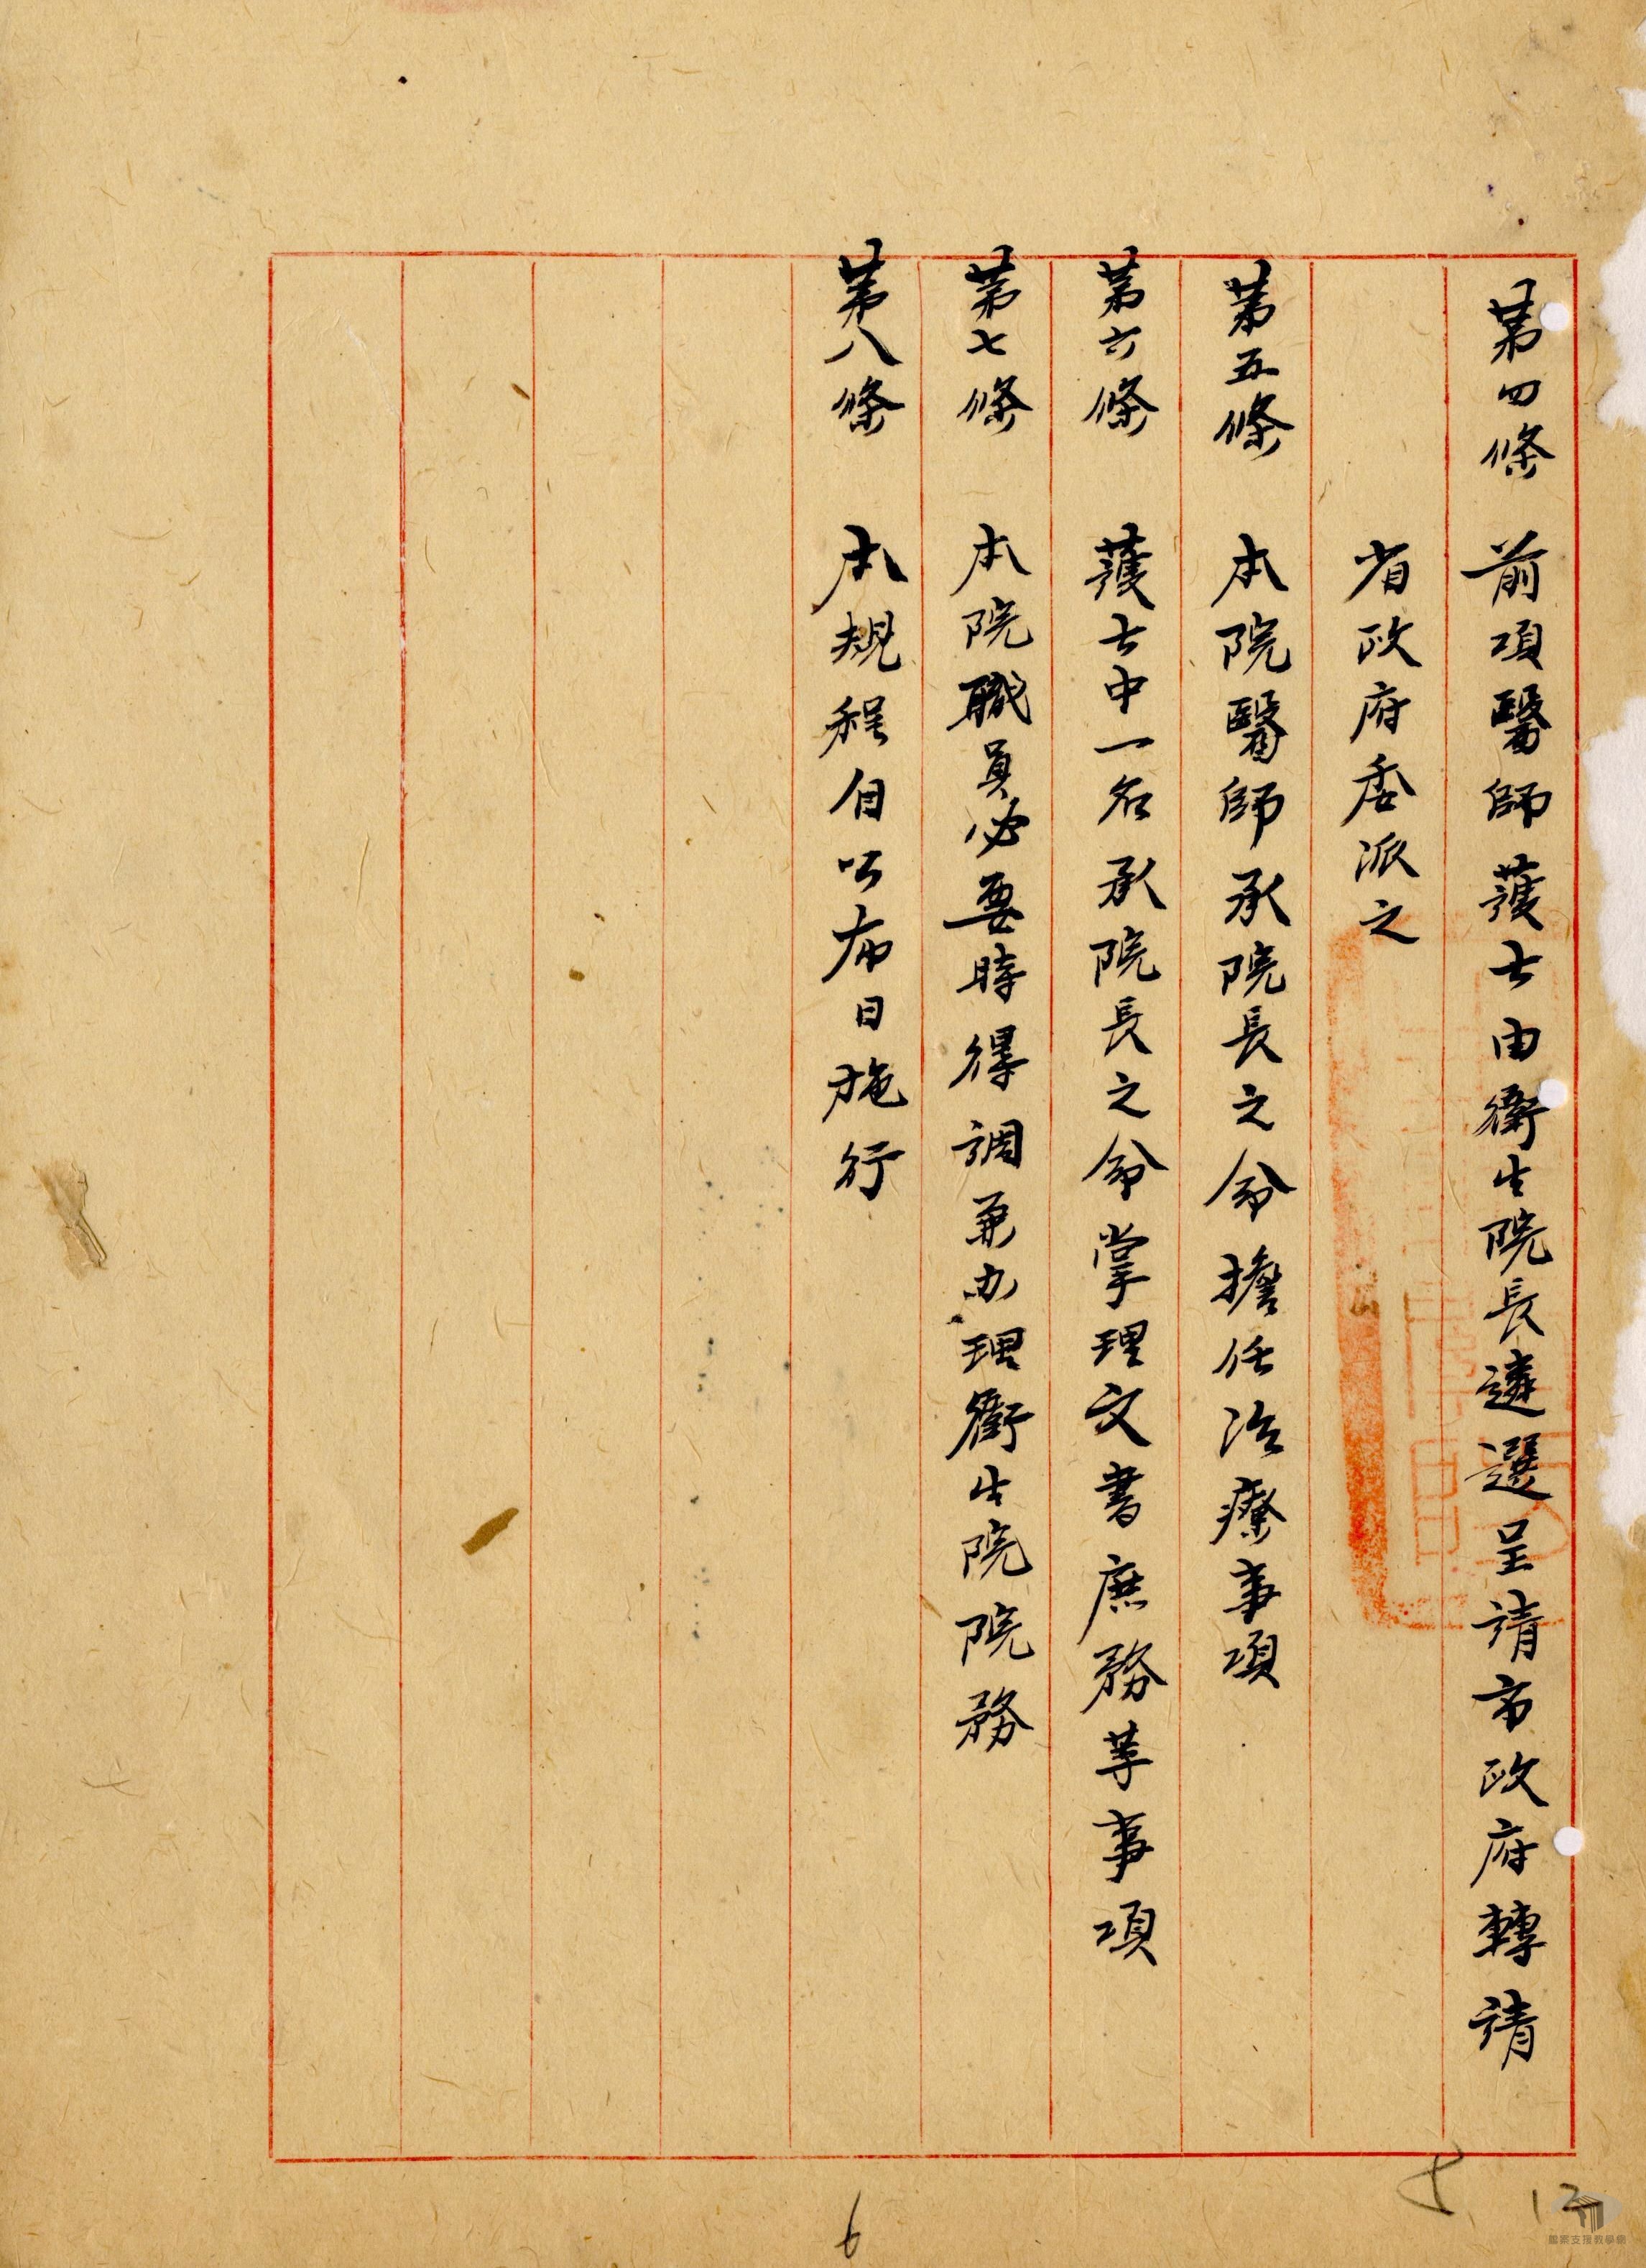 第四條 前項醫師護士由衛生院長遴選呈請市政府轉請
省政府委派之
第五條 本院醫師承院長之命擔任治療事項
第六條 護士中一名承院長之命掌理文書庶務等事項
第七條 本院職員必要時得調兼办理衛生院院務
第八條 本規程自公布日施行
6
12
檔案支援教學網